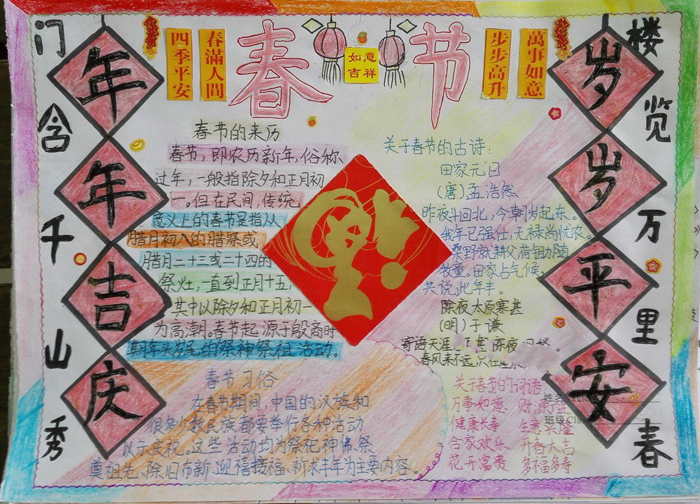 春节
四季平安
春滿人間
如意
吉祥
步步高升
萬事如意
门含千山秀
年年吉庆
岁岁平安
楼览万里春
春节的来历
春节,即农历新年,俗称
过年,一般指除夕和正月初
一。但在民间,传统
意义上的春节是指从
腊月初八的腊祭或
腊月二十三或二十四的
祭灶,一直到正月十五,
其中以除夕和正月初一
为高潮。春节起源于殷商时
期年头岁尾的祭神祭祖活动。
春节习俗
在春节期间,中国的汉族和
很多少数民族都要举行各种活动
以示庆祝。这些活动均为祭祀神佛、祭
奠祖先、除旧布新、迎禧接福、祈求丰年为主要内容。
福
关于春节的古诗:
田家元日
(唐)孟浩然
昨夜斗回北,今朝岁起东。
我年已强仕,无禄尚忧农。
桑野就耕父,荷锄随
牧童。田家占气候,
共说此年丰。
除夜太原寒甚
(明)于谦
寄语天涯
春风来不远
关于春节的
万事如意
健康长寿
合家欢乐
花开富贵
多福多寿